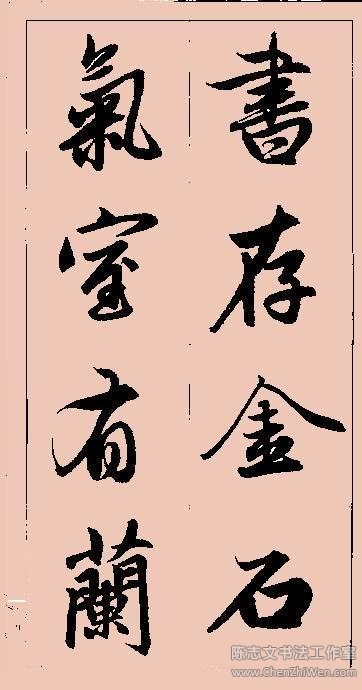 書存金石
氣室有蘭
陈志文书法工作室
www.ChenZhiWen.com